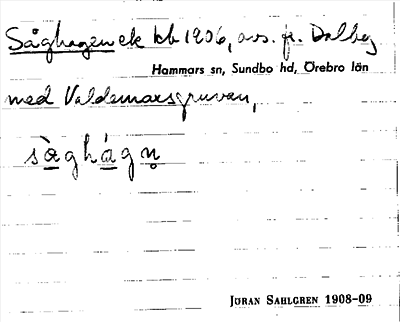 Såghagen ek kb 1906, avs. fr. Dalby
Hammars sn, Sundbo hd, Örebro län
med Valdemarsgruvan,
sàghágn̥
JÖRAN SAHLGREN 1908-09